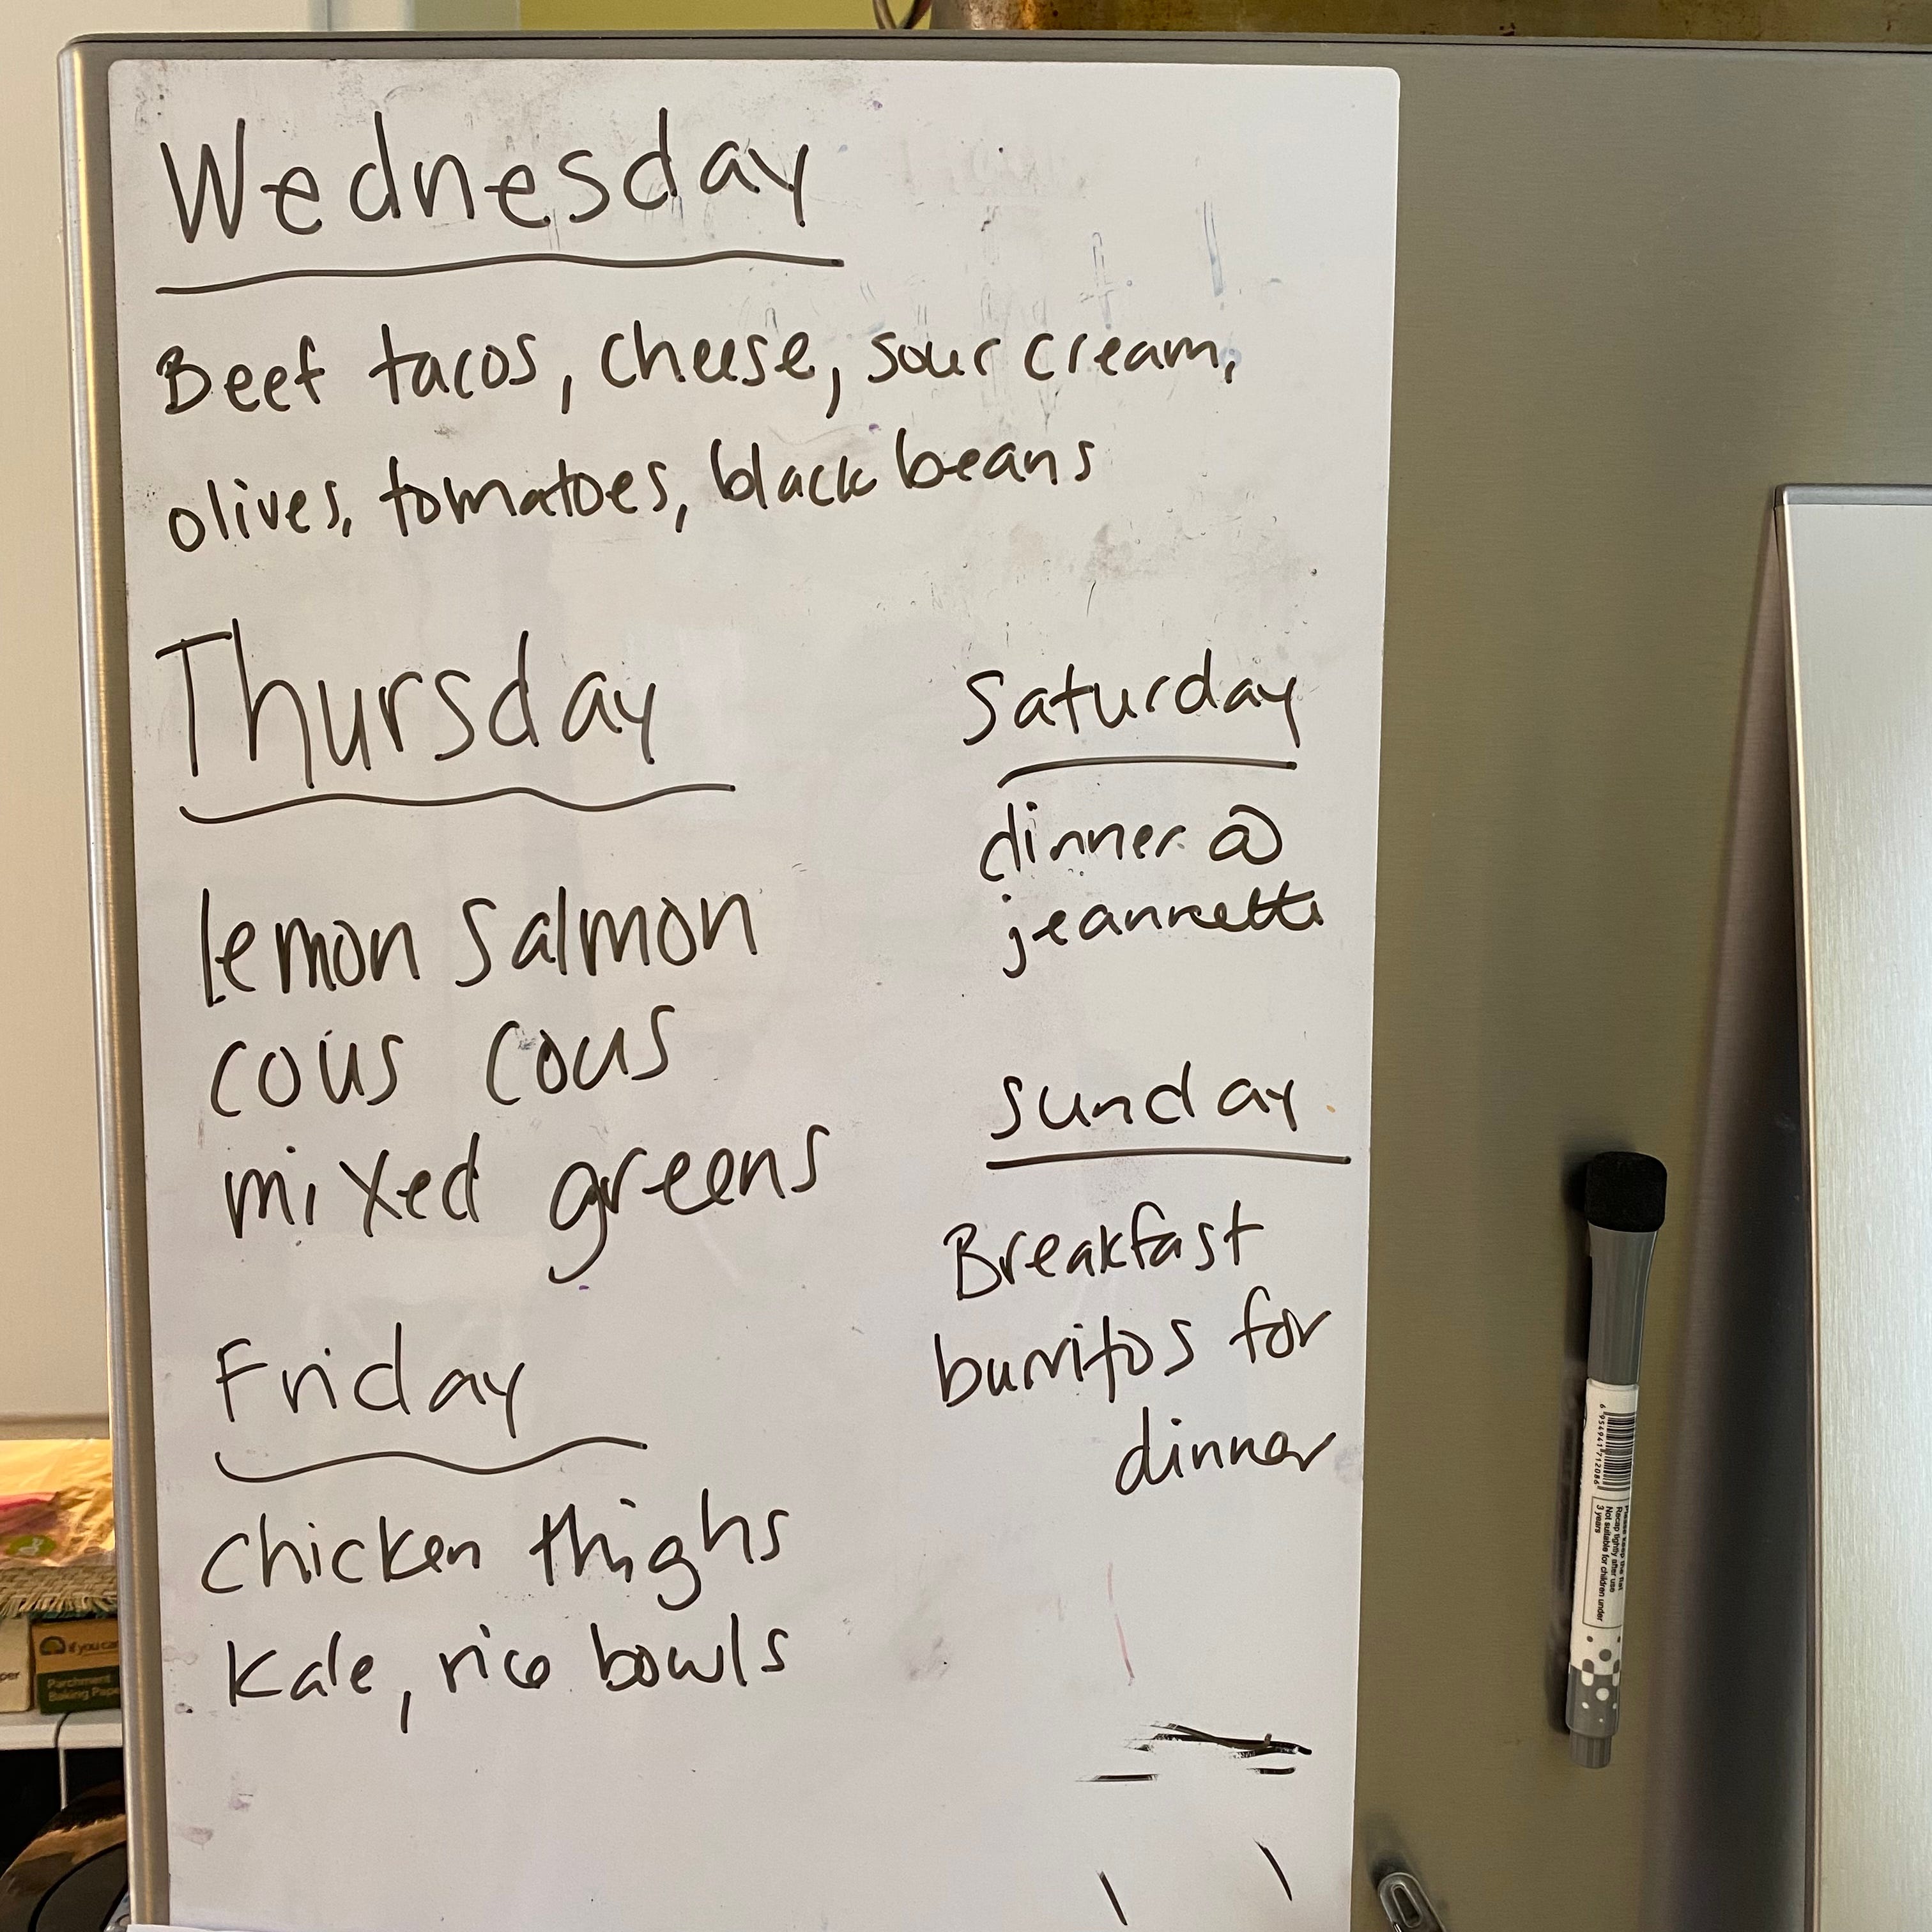 Wednesday
Beef tacos, cheese, sour cream,
olives, tomatoes, black beans
Thursday
lemon salmon
cous cous
mixed greens
Friday
Chicken thighs
Kale, rice bowls
Saturday
dinner @
Sunday
Breakfast
burritos for
dinner
6 954941 712086
Recap tightly after use
Not suitable for children under
3 years
if you ca
Parchment
Baking Pape
per